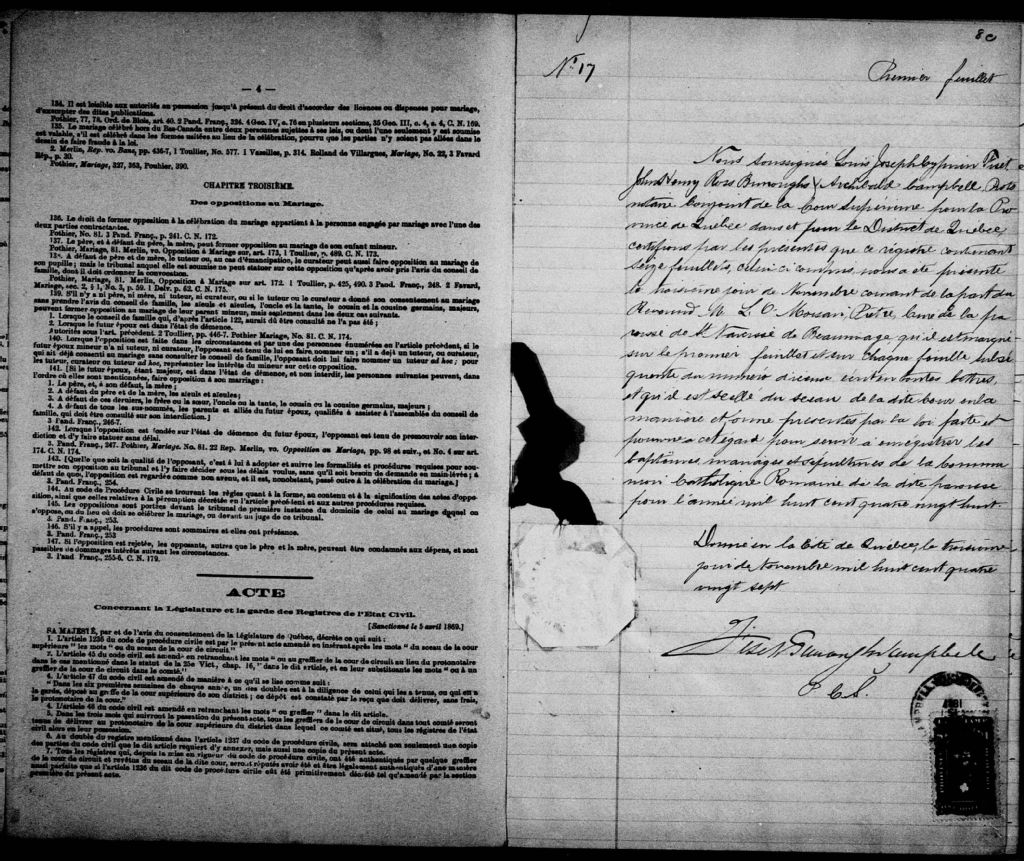 — 4 —
134. Il est loisible aux autorités en possession jusqu'à présent du droit d'accorder des licences ou dispenses pour mariage,
d'exempter des dites publications.
Pothier, 77, 78. Ord. de Blois, art. 40. 2 Pand. Franç., 324. 4 Geo. IV, c. 76 en plusieurs sections, 35 Geo. III, c. 4, s. 4, C. N. 169.
135. Le mariage célébré hors du Bas-Canada entre deux personnes sujettes à ses lois, ou dont l'une seulement y est soumise
est valable, s'il est célébré dans les formes usitées au lieu de la célébration, pourvu que les parties n'y soient pas allées dans le
dessein de faire fraude à la loi.
2. Merlin, Rép. vo. Banc, pp. 436-7, 1 Toullier, No. 577. 1 Vazeilles, p. 314. Rolland de Villargues, Mariage, No. 22, 3 Favard
Rép., p. 30.
Pothier, Mariage, 327, 363, Pouhier, 390.
CHAPITRE TROISIÈME.
Des oppositions au Mariage.
136. Le droit de former opposition à la célébration du mariage appartient à la personne engagée par mariage avec l'une des
deux parties contractantes.
Pothier, No. 81. 3 Pand. Franç., p. 241. C. N. 172.
137. Le père, et à défaut du père, la mère, peut former opposition au mariage de son enfant mineur.
Pothier, Mariage, 81. Merlin, vo. Opposition à Mariage sur art., 173, 1 Toullier, p. 489. C. N. 173.
A défaut de père et de mère, le tuteur ou, au cas d'émancipation, le curateur peut aussi faire opposition au mariage de
son pupille; mais le tribunal auquel elle est soumise ne peut statuer sur cette opposition qu'après avoir pris l'avis du conseil de
famille, dont il doit ordonner la convocation.
Pothier, Mariage, 81. Merlin, Opposition à Mariage sur art. 172. 1 Toullier, p. 425, 490. 3 Pand. Franç., 248. 2 Favard,
Mariage, sec. 2, § 1, No. 3, p. 59. 1 Delv. p. 62. C. N. 175.
139. S'il n'y a ni père, ni mère, ni tuteur, ni curateur, ou si le tuteur ou le curateur a donné son consentement au mariage
sans prendre l'avis du conseil de famille, les aïeuls et aïeules, l'oncle et la tante, le cousin et la cousine germains, majeurs,
peuvent former opposition au mariage de leur parent mineur, mais seulement dans les deux cas suivants.
1. Lorsque le conseil de famille qui, d'après l'article 122, aurait dû être consulté ne l'a pas été;
2. Lorsque le futur époux est dans l'état de démence.
Autorités sous l'art. précédent. 2 Toullier, pp. 446-7. Pothier Mariage, No. 81. C. N. 174.
140. Lorsque l'opposition est faite dans les circonstances et par une des personnes énumérées en l'article précédent, si le
futur époux mineur n'a ni tuteur, ni curateur, l'opposant est tenu de lui en faire nommer un; s'il a déjà un tuteur, ou curateur,
qui ait déjà consenti au mariage sans consulter le conseil de famille, l'opposant doit lui faire nommer un tuteur ad hoc; pour
les tuteur, curateur ou tuteur ad hoc, représenter les intérêts du mineur sur cette opposition.
141. [Si le futur époux, étant majeur, est dans l'état de démence, et non interdit, les personnes suivantes peuvent, dans
l'ordre où elles sont mentionnées, faire opposition à son mariage:
1. Le père, et, à son défaut, la mère;
2. A défaut du père et de la mère, les aïeuls et aïeules;
3. A défaut de ces derniers, le frère ou la sœur, l'oncle ou la tante, le cousin ou la cousine germains, majeurs;
4. A défaut de tous les sus-nommés, les parents et alliés du futur époux, qualifiés à assister à l'assemblée du conseil de
famille, qui doit être consulté sur son interdiction.]
3 Pand. Franç., 246-7.
142. Lorsque l'opposition est fondée sur l'état de démence du futur époux, l'opposant est tenu de promouvoir son inter-
diction et d'y faire statuer sans délai.
3. Pand. Franç., 247. Pothier, Mariage, No. 81. 22 Rep. Merlin, vo. Opposition au Mariage, pp. 98 et suiv., et No. 4 sur art.
174. C. N. 174.
143. [Quelle que soit la qualité de l'opposant, c'est à lui à adopter et suivre les formalités et procédures requises pour sou-
mettre son opposition au tribunal et l'y faire décider sous les délais voulus, sans qu'il soit besoin de demande en main-levée; à
défaut de quoi, l'opposition est regardée comme non avenue, et il est, nonobstant, passé outre à la célébration du mariage.]
3. Pand. Franç., 254.
144. Au code de Procédure Civile se trouvent les règles quant à la forme, au contenu et à la signification des actes d'oppo-
sition, ainsi que celles relatives à la péremption décrétée en l'article précédent et aux autres procédures requises.
145. Les oppositions sont portées devant le tribunal de première instance du domicile de celui au mariage duquel on
s'oppose, ou du lieu où doit se célébrer le mariage, ou devant un juge de ce tribunal.
3. Pand. Franç., 253.
146. S'il y a appel, les procédures sont sommaires et elles ont préséance.
3. Pand. Franç., 253
147. Si l'opposition est rejetée, les opposants, autres que le père et la mère, peuvent être condamnés aux dépens, et sont
passibles de dommages intérêts suivant les circonstances.
3. Pand. Franç., 255-6. C. N. 179.
ACTE
Concernant la Législature et la garde des Registres de l'Etat Civil.
[Sanctionné le 5 avril 1869.]
SA MAJESTÉ, par et de l'avis du consentement de la Législature de Québec, décrète ce qui suit:
1. L'article 1236 du code de procédure civile est par le présent acte amendé en insérant après les mots "du sceau de la cour
supérieure" les mots "ou du sceau de la cour de circuit."
2. L'article 45 du code civil est amendé en retranchant les mots "ou au greffier de la cour de circuit au lieu du protonotaire
dans le cas mentionné dans le statut de la 25e Vict., chap. 16," dans le dit article, et en leur substituant les mots "ou à un
greffier de la cour de circuit dans le comté."
3. L'article 47 du code civil est amendé de manière à ce qu'il se lise comme suit:
"Dans les six premières semaines de chaque année, un des doubles est à la diligence de celui qui les a tenus, ou qui en a
la garde, déposé au greffe de la cour supérieure de son district; ce dépôt est constaté par le reçu que doit délivrer, sans frais,
le protonotaire de la cour."
4. L'article 48 du code civil est amendé en retranchant les mots "ou greffier" dans le dit article.
5. Dans les trois mois qui suivront la passation du présent acte, tous les greffiers de la cour de circuit dans tout comté seront
tenus de délivrer au protonotaire de la cour supérieure du district dans lequel ce comté est situé, tous les registres de l'état
civil alors en leur possession.
6. Au double du registre mentionné dans l'article 1237 du code de procédure civile, sera attaché non seulement une copie
des parties du code civil que le dit article requiert d'y annexer, mais aussi une copie du présent acte.
7. Tous les registres qui, depuis la mise en vigueur du code de procédure civile, ont été authentiqués par quelque greffier
de la cour de circuit et revêtus du sceau de la dite cour, seront réputés avoir été et être légalement authentiqués d'une manière
aussi parfaite que si l'article 1236 du dit code de procédure civile eût été primitivement décrété tel qu'amendé par la section
première du présent acte.
8c
No 17
Premier feuillet
Nous soussignés Louis Joseph Cyprien Fiset
John Henry Ross Burroughs & Archibald Campbell, Proto
notaire Conjoint de la Cour Supérieure pour la Pro
vince de Québec dans et pour le District de Québec,
certifions par les présentes que ce registre contenant
seize feuillets, celui ci compris, nous a été présenté
le troisième jour de Novembre courant de la part du
Révérend M. L. O. Prêtre, Curé de la pa
roisse de St Narcisse de Beaurivage, qu'il est marqué
sur le premier feuillet et sur chaque feuille subsé
quente du numéro d'icelle écrit en toutes lettres,
et qu'il est scellé du sceau de la dite Cour en la
manière et forme prescrites par la loi faite et
pourvue à cet égard pour servir à enregistrer les
baptêmes, mariages et sépultures de la Commu
nion Catholique Romaine de la dite paroisse
pour l'année mil huit cent quatre vingt huit.
Donné en la Cité de Québec, le troisième
jour de Novembre mil huit cent quatre
vingt sept
Fiset Burroughs Campbell
P. C. S.